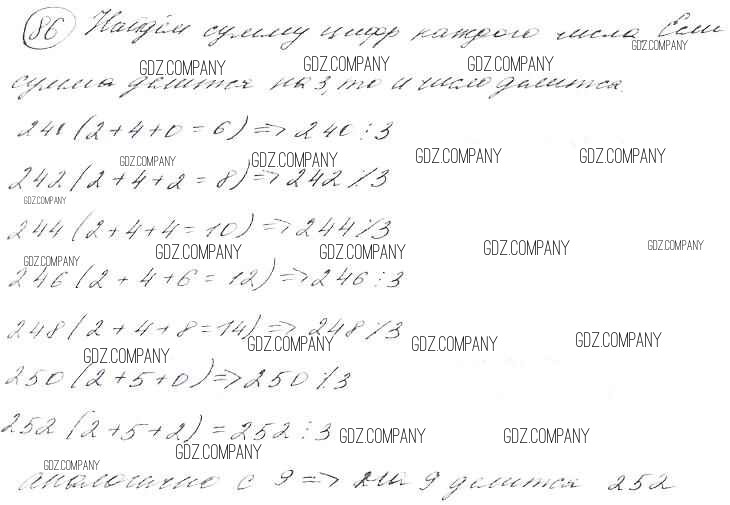 86 Найдём сумму цифр каждого числа. Если
GDZ.COMPANY GDZ.COMPANY GDZ.COMPANY GDZ.COMPANY
сумма делится на 3, то и число делится.
240 (2+4+0=6) => 240 ⋮ 3
GDZ.COMPANY GDZ.COMPANY GDZ.COMPANY GDZ.COMPANY
242 (2+4+2=8) => 242 ⋮̸ 3
GDZ.COMPANY
244 (2+4+4=10) => 244 ⋮̸ 3
GDZ.COMPANY GDZ.COMPANY GDZ.COMPANY GDZ.COMPANY GDZ.COMPANY
246 (2+4+6=12) => 246 ⋮ 3
248 (2+4+8=14) => 248 ⋮̸ 3
GDZ.COMPANY GDZ.COMPANY GDZ.COMPANY GDZ.COMPANY
250 (2+5+0) => 250 ⋮̸ 3
252 (2+5+2) = 252 ⋮ 3
GDZ.COMPANY GDZ.COMPANY
GDZ.COMPANY GDZ.COMPANY
аналогично с 9 => на 9 делится 252